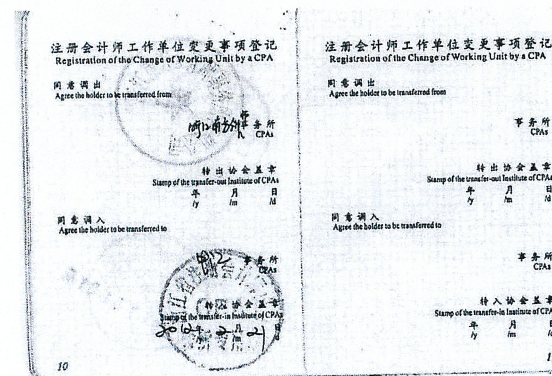 注册会计师工作单位变更事项登记
Registration of the Change of Working Unit by a CPA
同意调出
Agree the holder to be transferred from
事务所
CPAs
转出协会盖章
Stamp of the transfer-out Institute of CPAs
年 月 日
/y /m /d
同意调入
Agree the holder to be transferred to
事务所
CPAs
转入协会盖章
Stamp of the transfer-in Institute of CPAs
年 月 日
/y /m
10
注册会计师工作单位变更事项登记
Registration of the Change of Working Unit by a CPA
同意调出
Agree the holder to be transferred from
事务所
CPAs
转出协会盖章
Stamp of the transfer-out Institute of CPAs
年 月 日
/y /m /d
同意调入
Agree the holder to be transferred to
事务所
CPAs
转入协会盖章
Stamp of the transfer-in Institute of CPAs
年 月
/y /m